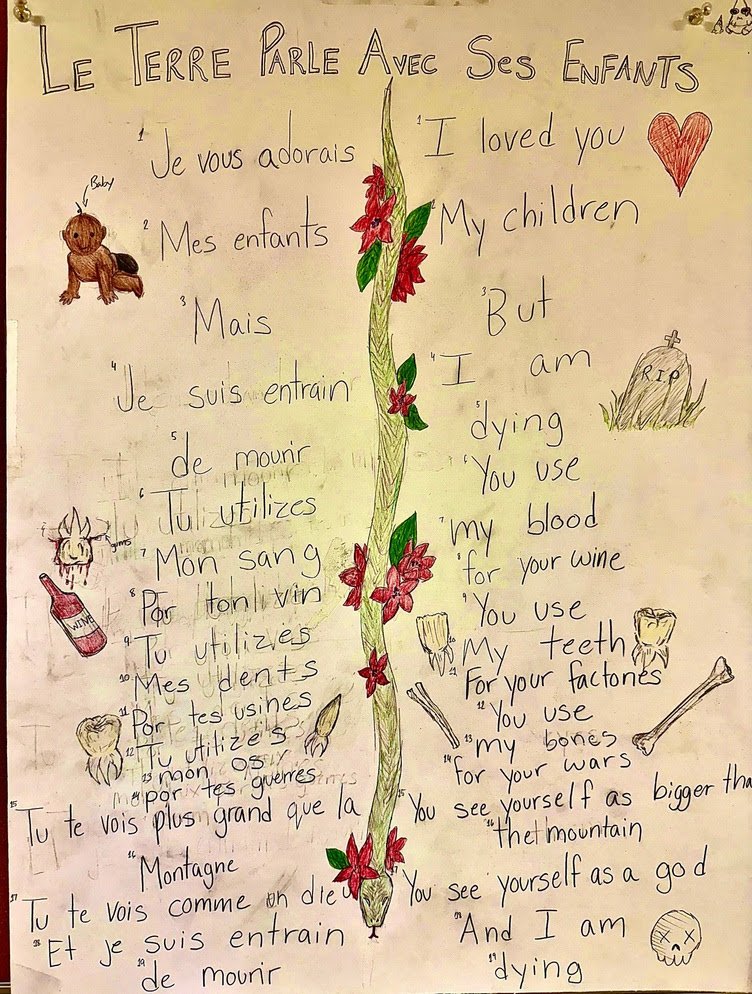 LE TERRE PARLE AVEC SES ENFANTS
1 Je vous adorais
2 Mes enfants
3 Mais
4 Je suis entrain
5 de mourir
6 Tu utilizes
7 Mon sang
8 Por ton vin
9 Tu utilizes
10 Mes dents
11 Por tes usines
12 Tu utilizes
13 mon os
14 por tes guerres
15 Tu te vois plus grand que la
16 Montagne
17 Tu te vois comme un dieu
18 Et je suis entrain
19 de mourir
1 I loved you
2 My children
3 But
4 I am
5 dying
6 You use
7 my blood
8 for your wine
9 You use
10 My teeth
11 For your factories
12 You use
13 my bones
14 for your wars
15 You see yourself as bigger tha
16 thet mountain
17 You see yourself as a god
18 And I am
19 dying
Baby
gums
WINE
RIP